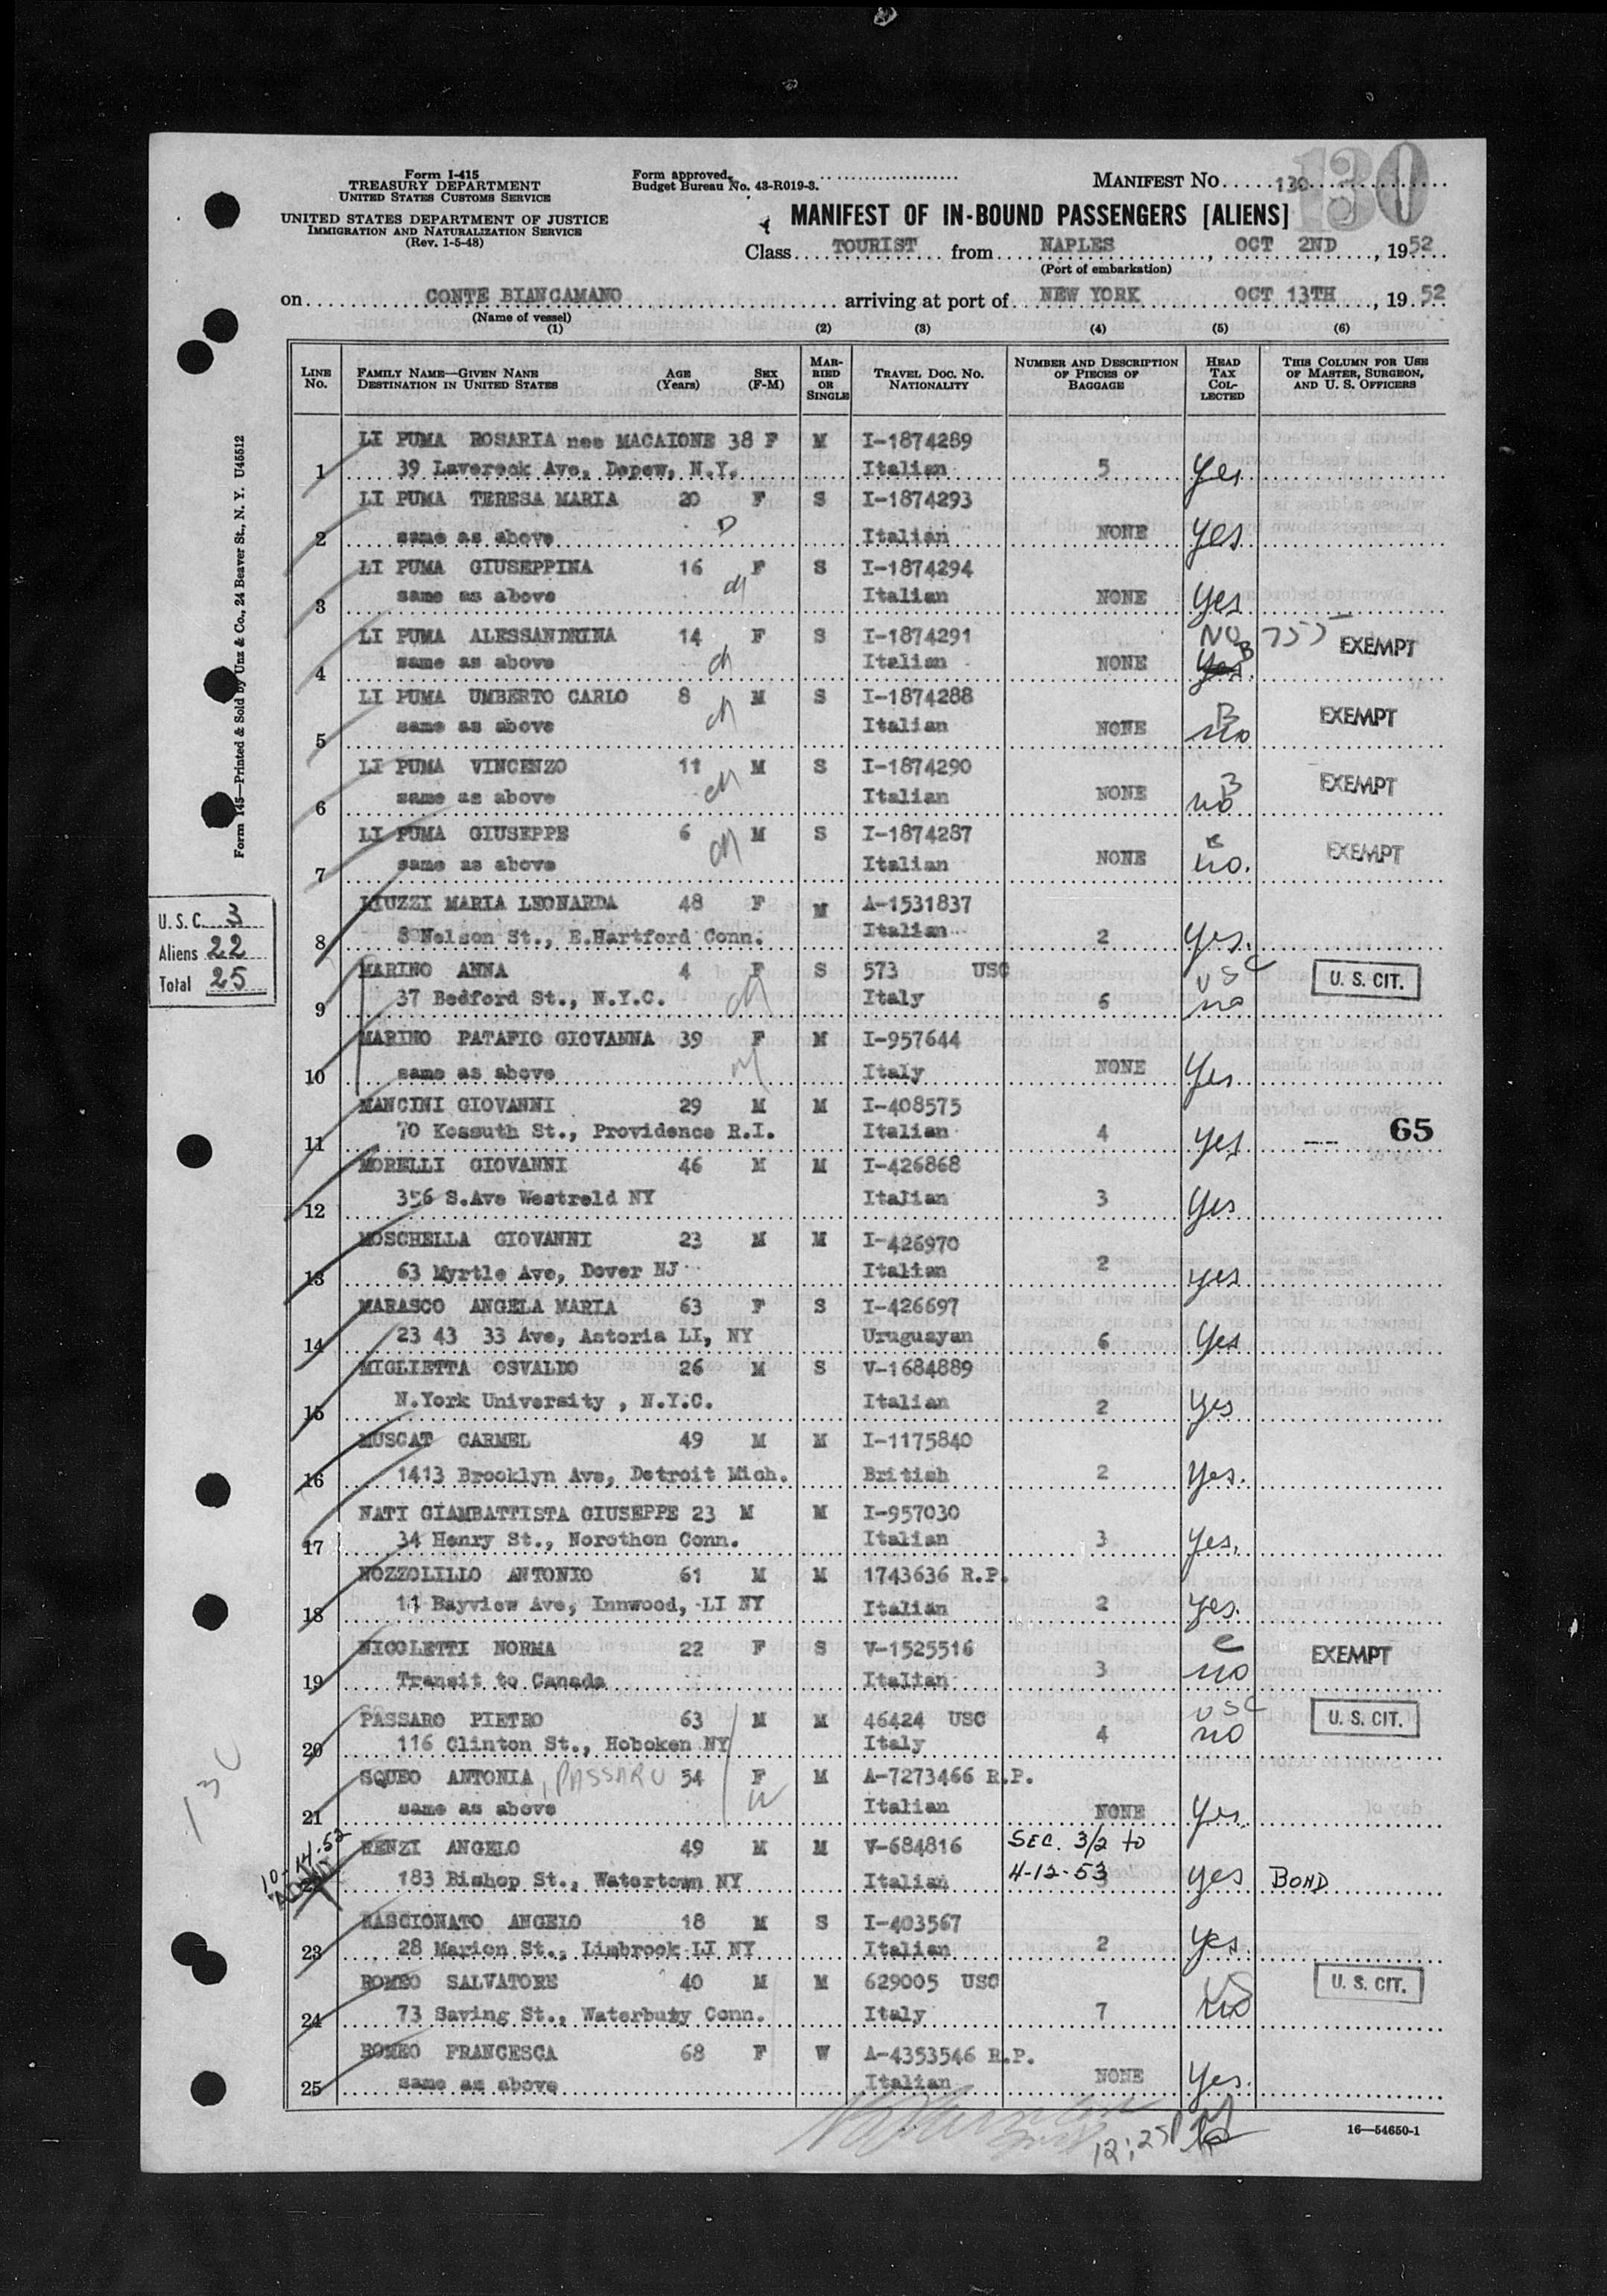 130
Form I-415
TREASURY DEPARTMENT
UNITED STATES CUSTOMS SERVICE
UNITED STATES DEPARTMENT OF JUSTICE
IMMIGRATION AND NATURALIZATION SERVICE
(Rev. 1-5-48)
Form approved.
Budget Bureau No. 43-R019-3.
MANIFEST NO. 130
MANIFEST OF IN-BOUND PASSENGERS [ALIENS]
Class TOURIST from NAPLES, OCT 2ND, 1952
(Port of embarkation)
on CONTE BIANCAMANO arriving at port of NEW YORK OCT 13TH, 1952
(Name of vessel)
(1) (2) (3) (4) (5) (6)
LINE No. FAMILY NAME—GIVEN NANE DESTINATION IN UNITED STATES AGE (Years) SEX (F-M) MARRIED OR SINGLE TRAVEL DOC. NO. NATIONALITY NUMBER AND DESCRIPTION OF PIECES OF BAGGAGE HEAD TAX COLLECTED THIS COLUMN FOR USE OF MASTER, SURGEON, AND U. S. OFFICERS
LI PUMA ROSARIA nee MACAIONE 38 F M I-1874289
1 39 Lavereck Ave, Depew, N.Y. Italian 5 Yes
LI PUMA TERESA MARIA 20 F S I-1874293
2 same as above Italian NONE Yes
LI PUMA GIUSEPPINA 16 F S I-1874294
3 same as above Italian NONE Yes
LI PUMA ALESSANDRINA 14 F S I-1874291 NO 755 EXEMPT
4 same as above Italian NONE Yes B
LI PUMA UMBERTO CARLO 8 M S I-1874288 B EXEMPT
5 same as above Italian NONE no
LI PUMA VINCENZO 11 M S I-1874290 B EXEMPT
6 same as above Italian NONE no
LI PUMA GIUSEPPE 6 M S I-1874287 EXEMPT
7 same as above Italian NONE no.
LIUZZI MARIA LEONARDA 48 F M A-1531837
8 8 Nelson St., E.Hartford Conn. Italian 2 Yes.
MARINO ANNA 4 F S 573 USC USC U. S. CIT.
9 37 Bedford St., N.Y.C. Italy 6 no
MARINO PATAFIO GIOVANNA 39 F M I-957644
10 same as above Italy NONE Yes
MANCINI GIOVANNI 29 M M I-408575
11 70 Kossuth St., Providence R.I. Italian 4 yes 65
MORELLI GIOVANNI 46 M M I-426868
12 356 S.Ave Westreld NY Italian 3 Yes
MOSCHELLA GIOVANNI 23 M M I-426970
13 63 Myrtle Ave, Dover NJ Italian 2 yes
MARASCO ANGELA MARIA 63 F S I-426697
14 23 43 33 Ave, Astoria LI, NY Uruguayan 6 Yes
MIGLIETTA OSVALDO 26 M S V-1684889
15 N.York University , N.Y.C. Italian 2 Yes
MUSCAT CARMEL 49 M M I-1175840
16 1413 Brooklyn Ave, Detroit Mich. British 2 Yes.
NATI GIAMBATTISTA GIUSEPPE 23 M M I-957030
17 34 Henry St., Norothon Conn. Italian 3 Yes,
NOZZOLILLO ANTONIO 61 M M 1743636 R.P.
18 11 Bayview Ave, Innwood, LI NY Italian 2 yes.
NICOLETTI NORMA 22 F S V-1525516 EXEMPT
19 Transit to Canada Italian 3 no
PASSARO PIETRO 63 M M 46424 USC USC U. S. CIT.
20 116 Clinton St., Hoboken NY Italy 4 no
SQUEO ANTONIA, PASSARO 54 F M A-7273466 R.P.
21 same as above Italian NONE Yes.
10-14-52 RENZI ANGELO 49 M M V-684816 SEC. 3/2 to
183 Bishop St., Watertown NY Italian 4-12-53 yes BOND
RASCIONATO ANGELO 18 M S I-403567
23 28 Marion St., Limbrook LI NY Italian 2 yes.
ROMEO SALVATORE 40 M M 629005 USC US U. S. CIT.
24 73 Saving St., Waterbury Conn. Italy 7 no
ROMEO FRANCESCA 68 F W A-4353546 R.P.
25 same as above Italian NONE Yes.
12:25P
16—54650-1
Form 145—Printed & Sold by Unz & Co., 24 Beaver St., N. Y. U45512
U. S. C. 3
Aliens 22
Total 25
130